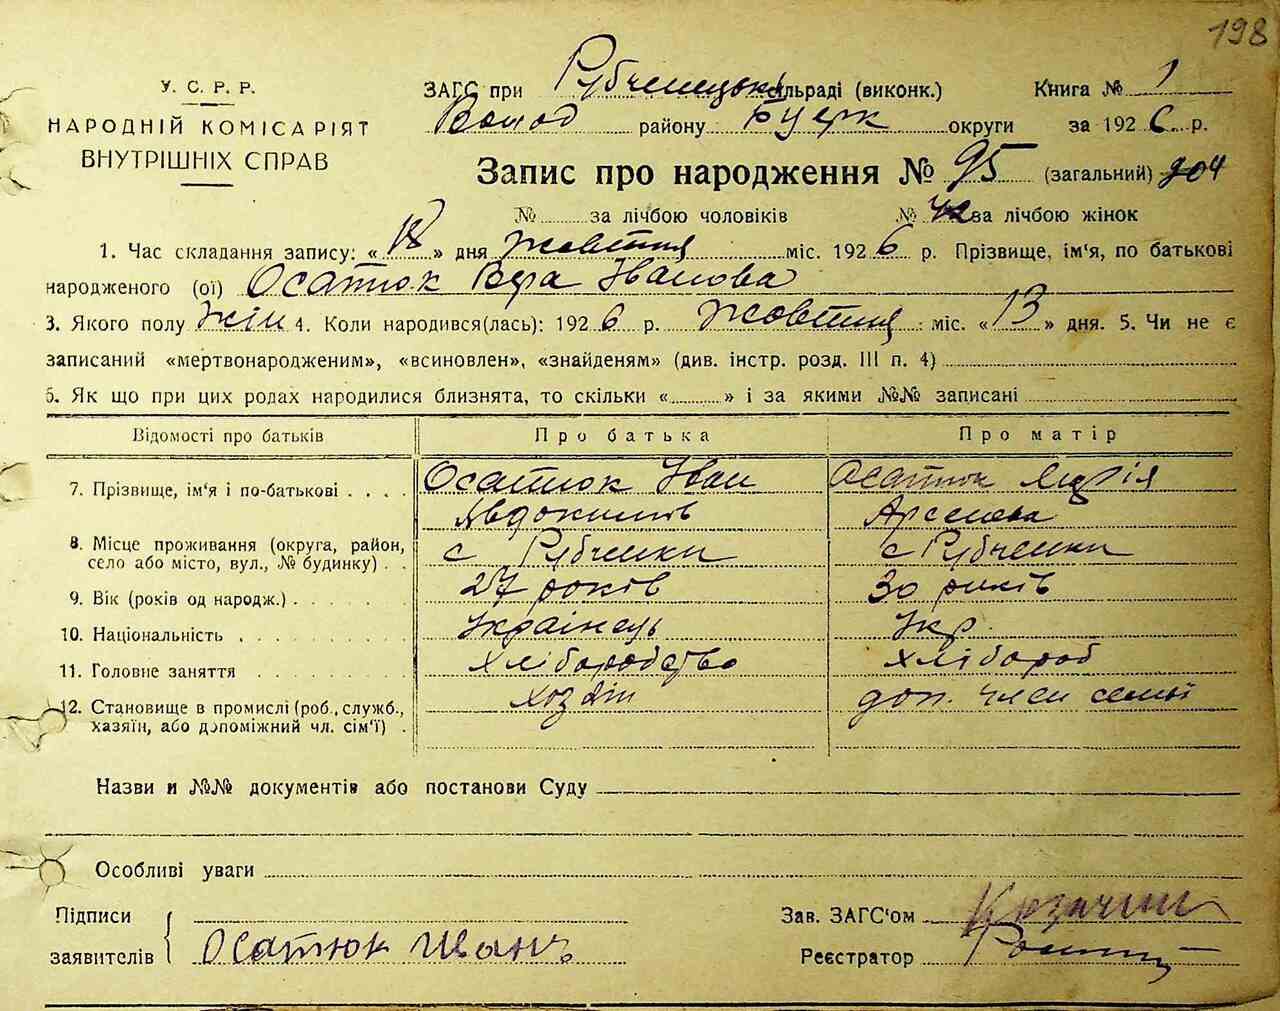 198
У. С. Р. Р.
НАРОДНІЙ КОМІСАРІЯТ
ВНУТРІШНІХ СПРАВ
ЗАГС при Рубченецькі сільраді (виконк.) Книга № 1
Волод району Буерк округи за 1926 р.
Запис про народження № 95 (загальний) 204
№ за лічбою чоловіків № 42 за лічбою жінок
1. Час складання запису: « 18 » дня жовтня міс. 1926 р. Прізвище, ім'я, по батькові
народженого (ої) Осатюк Вера Іванова
3. Якого полу жін 4. Коли народився(лась): 1926 р. жовтня міс. « 13 » дня. 5. Чи не є
записаний «мертвонародженим», «всиновлен», «знайденям» (див. інстр. розд. III п. 4)
6. Як що при цих родах народилися близнята, то скільки « » і за якими №№ записані
Відомості про батьків Про батька Про матір
7. Прізвище, ім'я і по-батькові Осатюк Іван Осатюк Марія
Авдокимів Арсенова
8. Місце проживання (округа, район, с Рубченки с Рубченки
село або місто, вул., № будинку)
9. Вік (років од народж.) 27 років 30 років
10. Національність Українець Укр.
11. Головне заняття хліборобство хлібороб
12. Становище в промислі (роб., служб., доп. член семьї
хазяїн, або допоміжний чл. сім'ї)
Назви и №№ документів або постанови Суду
Особливі уваги
Підписи Зав. ЗАГС'ом
заявителів Осатюк Иванъ Реєстратор